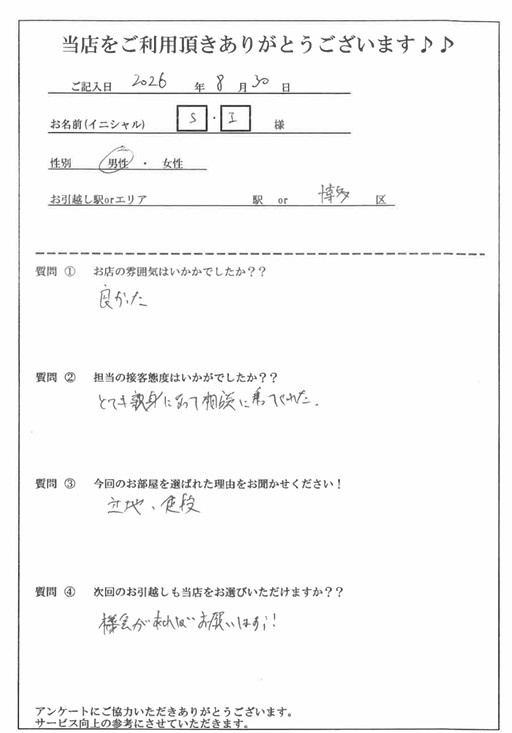 当店をご利用頂きありがとうございます♪♪
ご記入日 2026 年 8 月 30 日
お名前(イニシャル) S ・ I 様
性別 男性 ・ 女性
お引越し駅orエリア 駅 or 博多 区
質問 ① お店の雰囲気はいかかでしたか??
良かった
質問 ② 担当の接客態度はいかがでしたか??
とても親身になって相談に乗ってくれた。
質問 ③ 今回のお部屋を選ばれた理由をお聞かせください!
立地、値段
質問 ④ 次回のお引越しも当店をお選びいただけますか??
機会があればお願いします!
アンケートにご協力いただきありがとうございます。
サービス向上の参考にさせていただきます。